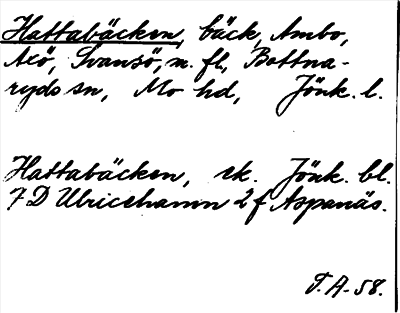 Hattabäcken, bäck, Ambo,
Axö, Svansö, m. fl., Bottna-
ryds sn, Mo hd, Jönk. l.
Hattabäcken, ek. Jönk. bl.
7 D Ulricehamn 2 f Aspanäs.
T. A. -58.